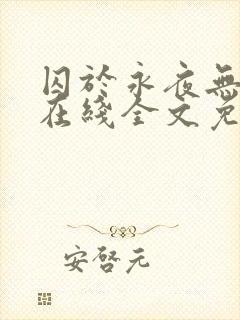 囚於永夜無
在綫全文免
安啓元